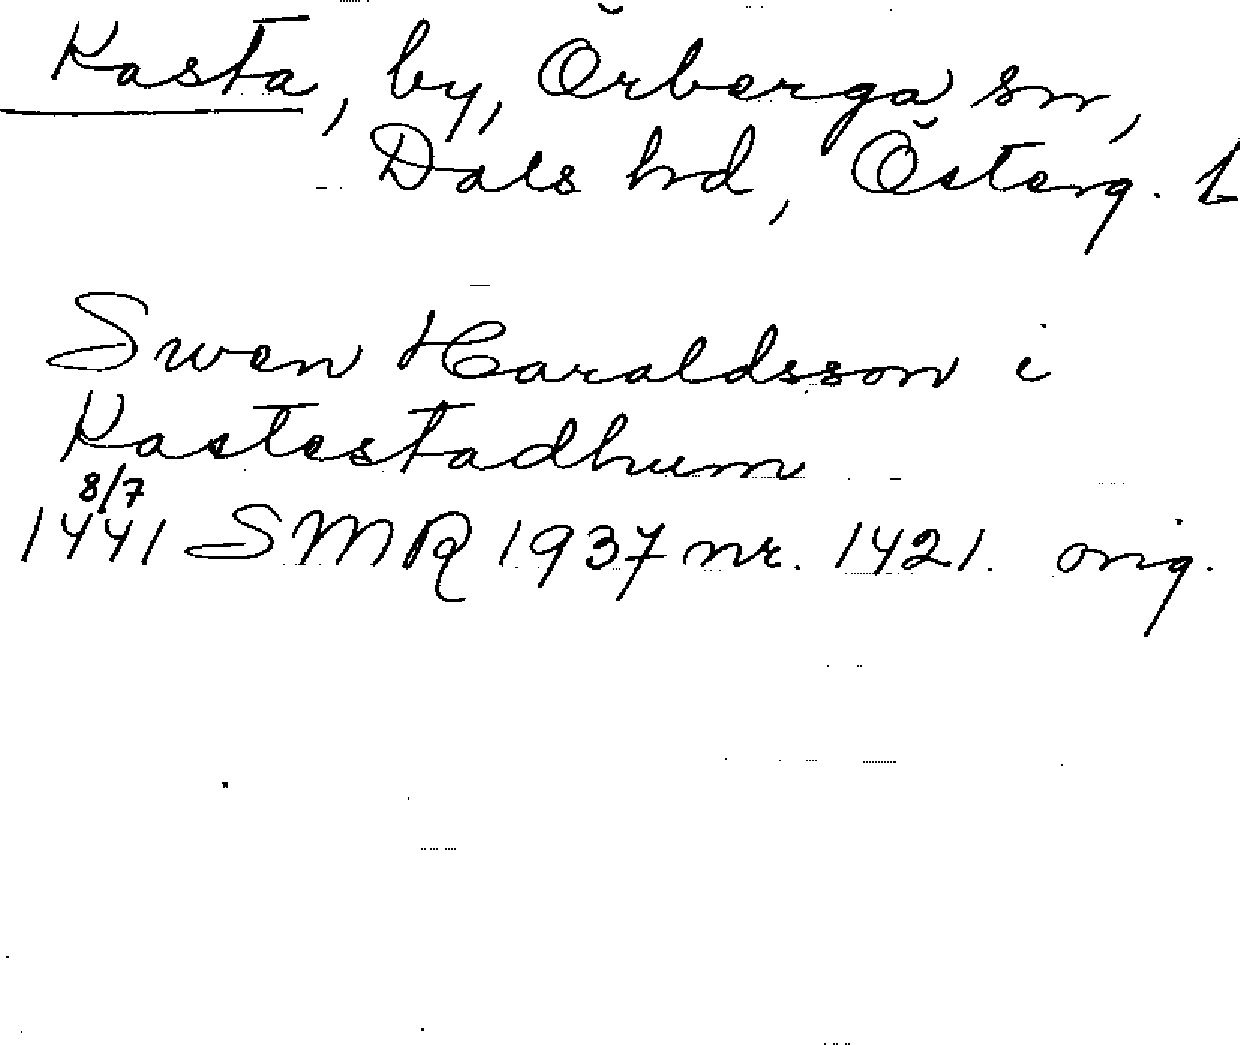 Kasta, by, Örberga sn,
Dals hd, Österg. L
Swen Haraldsson i
Kastestadhum
8/7
1441 SMR 1937 nr. 1421. orig.